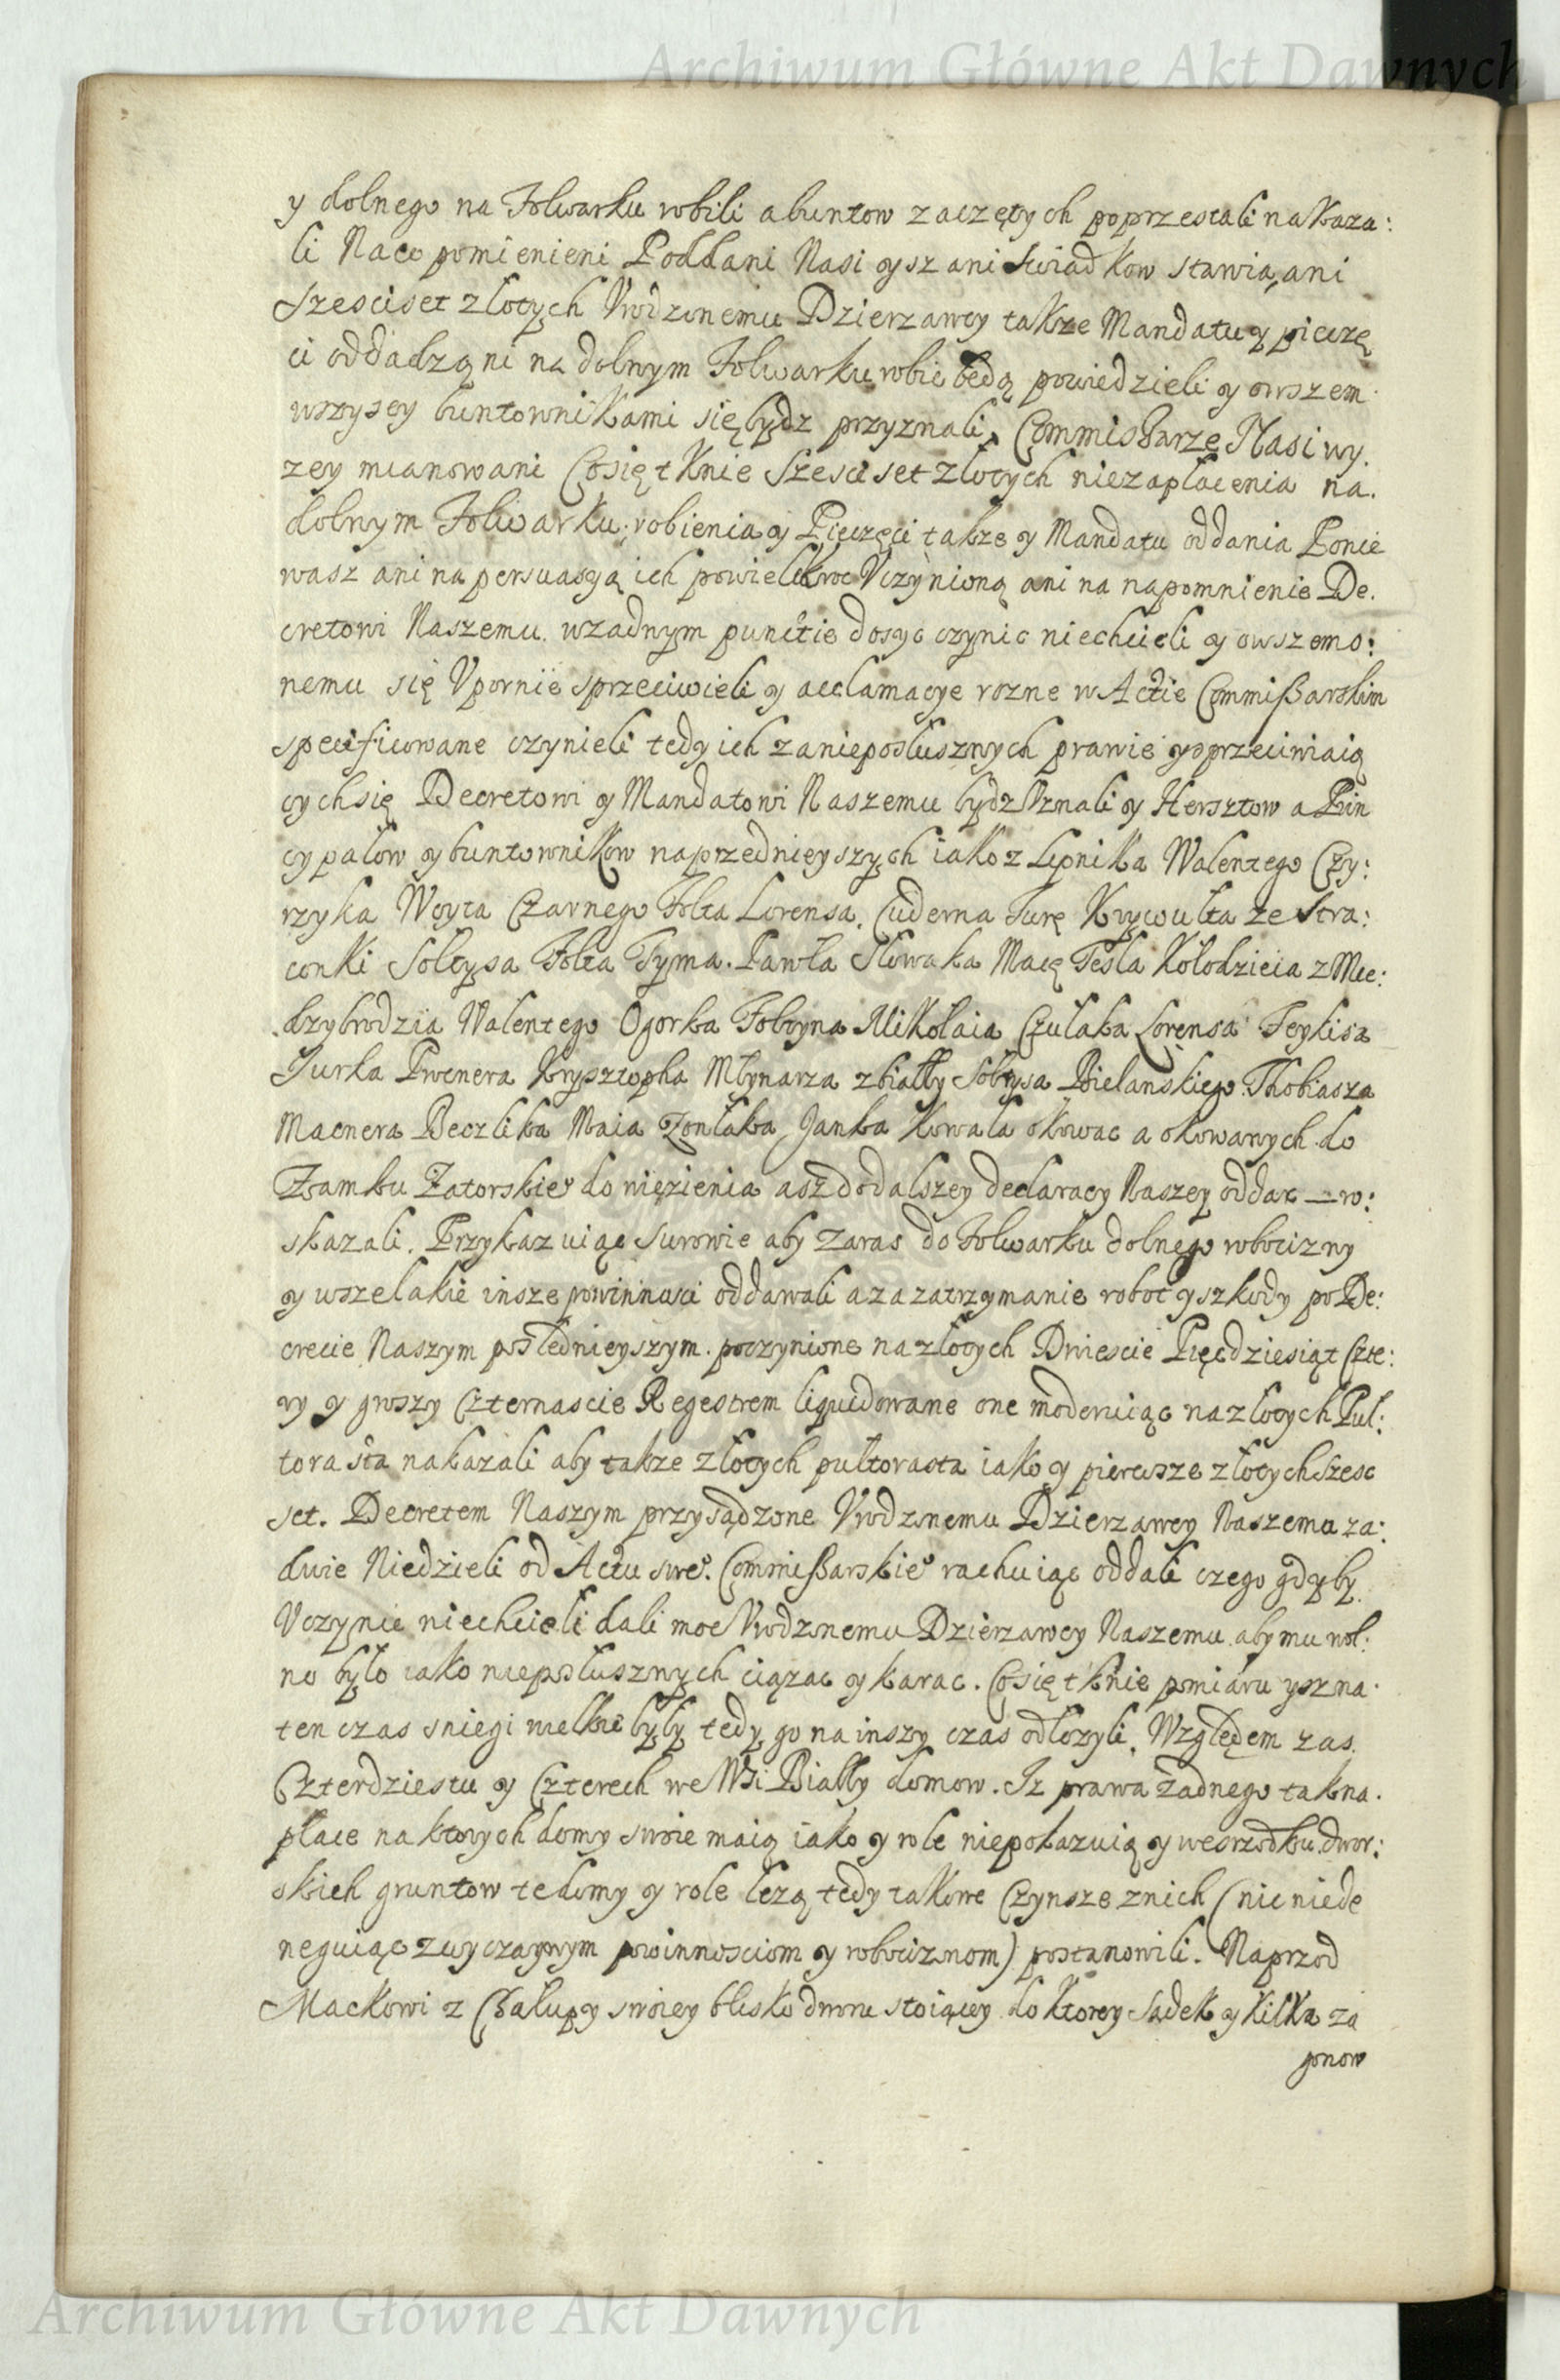 Archiwum Główne Akt Dawnych
y dolnego na Folwarku robili a buntow zaczętych poprzestali nakaza:
li Naco pomienieni Poddani Nasi ysz ani swiadkow stawią, ani
szesciset złotych Vrodzonemu Dzierzawcy takze Mandatu y pieczę
ci oddadzą ni na dolnym Folwarku robic będą powiedzieli y owszem
wszyscy buntownikami się bydz przyznali, Commissarze Nasi wy.
zey mianowani Cosię tknie szesciset złotych niezapłacenia na.
dolnym Folwarku robienia y Pieczęci takze y Mandatu oddania Ponie
wasz ani na persuasyą ich powielekroc Vczynioną ani na napomnienie De.
cretowi Naszemu wzadnym punctie dosyc czynic niechcieli y owszem o:
nemu się Vpornie sprzeciwieli y acclamacye rozne w Actie Commißarskim
specificowane czynieli tedy ich za nieposłusznych prawie y sprzeciwiaią
cych się Decretowi y Mandatowi Naszemu bydz Vznali y Hersztow a Prin
cypałow y buntownikow naprzednieyszych iako z Lipnika Walentego Czy:
rzyka Woyta Czarnego Folta Lorensa. Cuderna Turę Krywulta ze Stra:
conki Sołtysa Folta Tyma. Pawła Słowaka Macę Tesla Kołodzieia z Mie:
dzybrodzia Walentego Ogorka Foltyna Mikołaia Czulaka Lorensa Feykisa
Jurka Pwenera Krysztopha Młynarza z biały Sołtysa Bielanskiego Thobiasza
Macnera Beczlika Maia Zontaka Janka Kowala okowac a okowanych do
Zamku Zatorskieo do więzienia asz do dalszey declaracy Naszey oddac — ro:
skazali. Przykazuiąc surowie aby zaras do Folwarku dolnego robocizny
y wszelakie insze powinnosci oddawali a za zatrzymanie robot y szkody po De:
crecie Naszym poslednieyszym. poczynione na złotych Dwiescie Pięcdziesiąt Czte:
ry y groszy Czternascie Regestrem liquidowane one moderuiąc na złotych Puł:
tora sta nakazali aby takze złotych pułtorasta iako y pierwsze złotych szesc
set. Decretem Naszym przysądzone Vrodzonemu Dzierzawcy Naszemu za:
dwie Niedzieli od Actu sweo. Commißarskieo rachuiąc oddali czego gdyby
Vczynic niechcieli dali moc Vrodzonemu Dzierzawcy Naszemu aby mu wol:
no było iako nieposłusznych ciązac y karac. Cosię tknie pomiaru ysz na.
ten czas sniegi wielkie były tedy go na inszy czas odłozyli. Względem zas
Czterdziestu y Czterech we Wsi Biały domow. Iz prawa zadnego tak na.
place na ktorych domy swoie maią iako y role niepokazuią y wesrzodku dwor:
skich gruntow te domy y role lezą tedy takowe Czynsze znich (nic niede
neguiąc zwyczaynym powinnosciom y robociznom) postanowili. Naprzod
Mackowi z Chałupy swoiey blisko dworu stoiącey do ktorey sadek y kilka za
gonow
Archiwum Główne Akt Dawnych